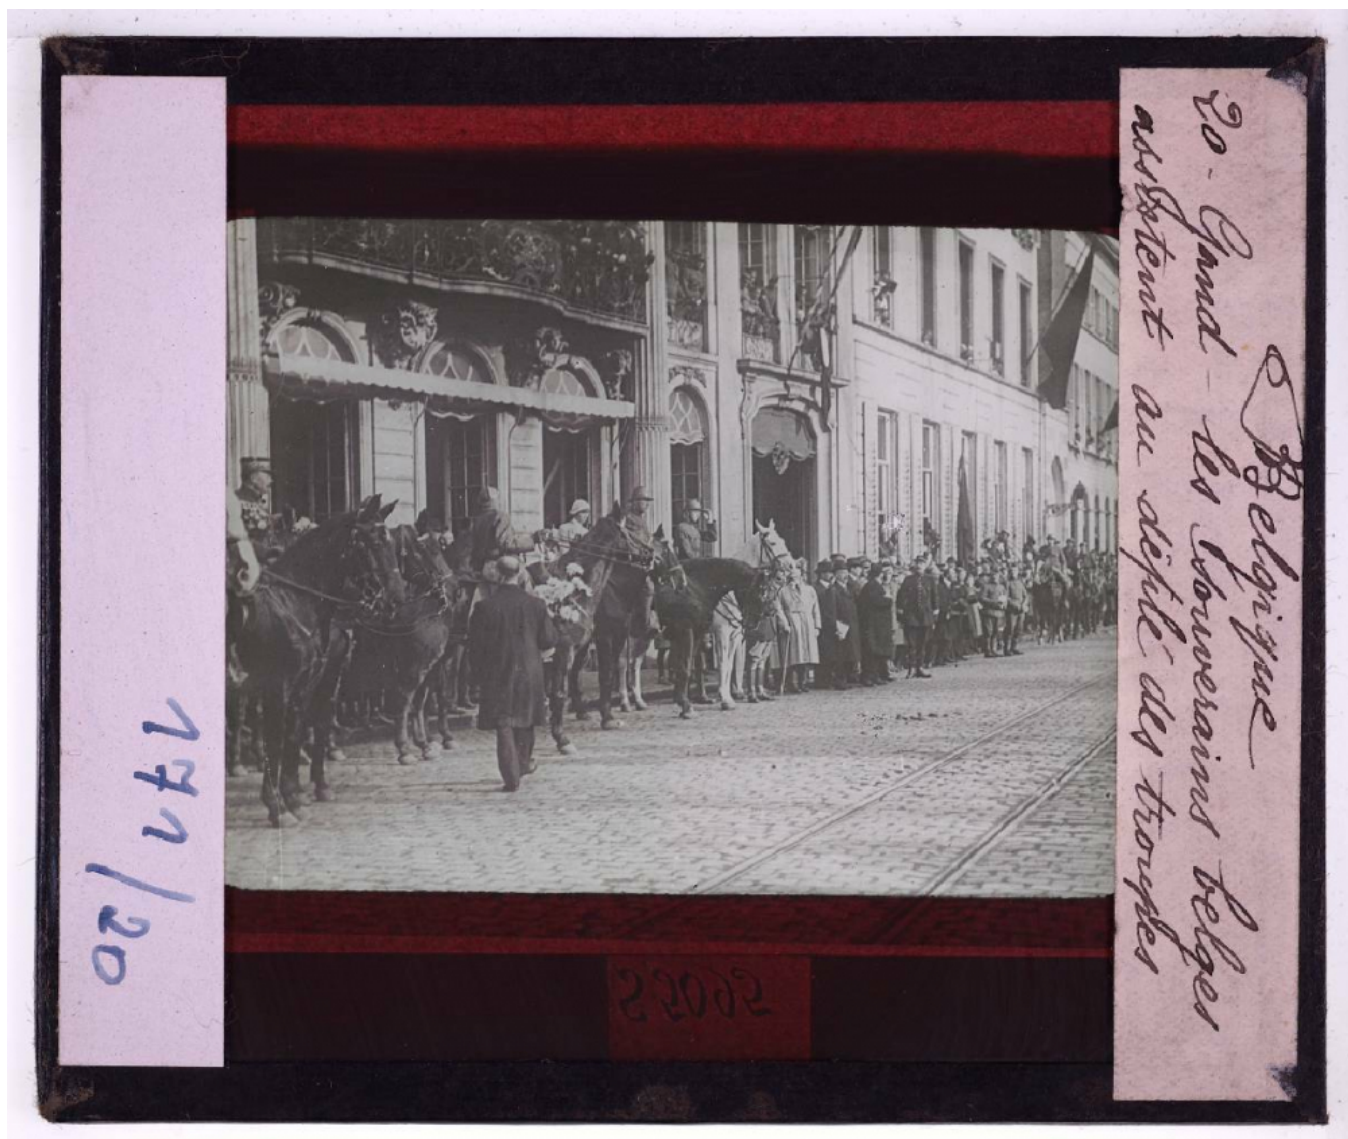 Belgique
20 - Gand - les Souverains belges
assistent au défilé des troupes
171/20